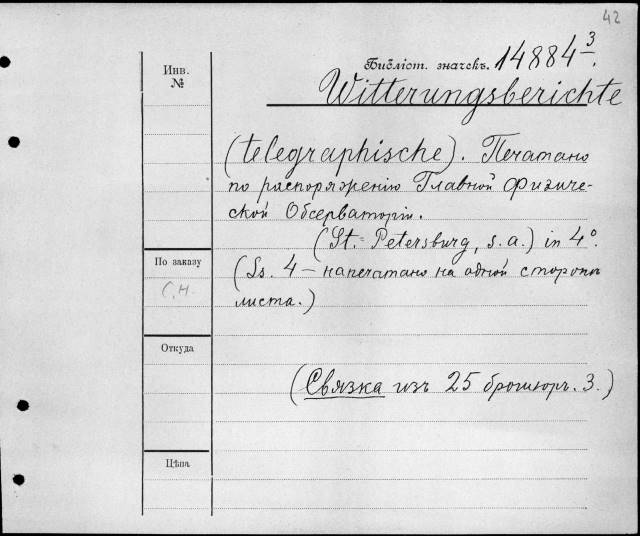 42
Инв.
№
Библіот. значекъ. 14884 3/.
Witterungsberichte
(telegraphische). Печатано
по распоряженію Главной Физиче-
ской Обсерваторіи.
(St.=Petersburg, s.a.) in 4°.
По заказу
(Ss. 4 – напечатано на одной стороны
листа.)
Откуда
(Связка изъ 25 брошюръ. 3.)
Цѣна